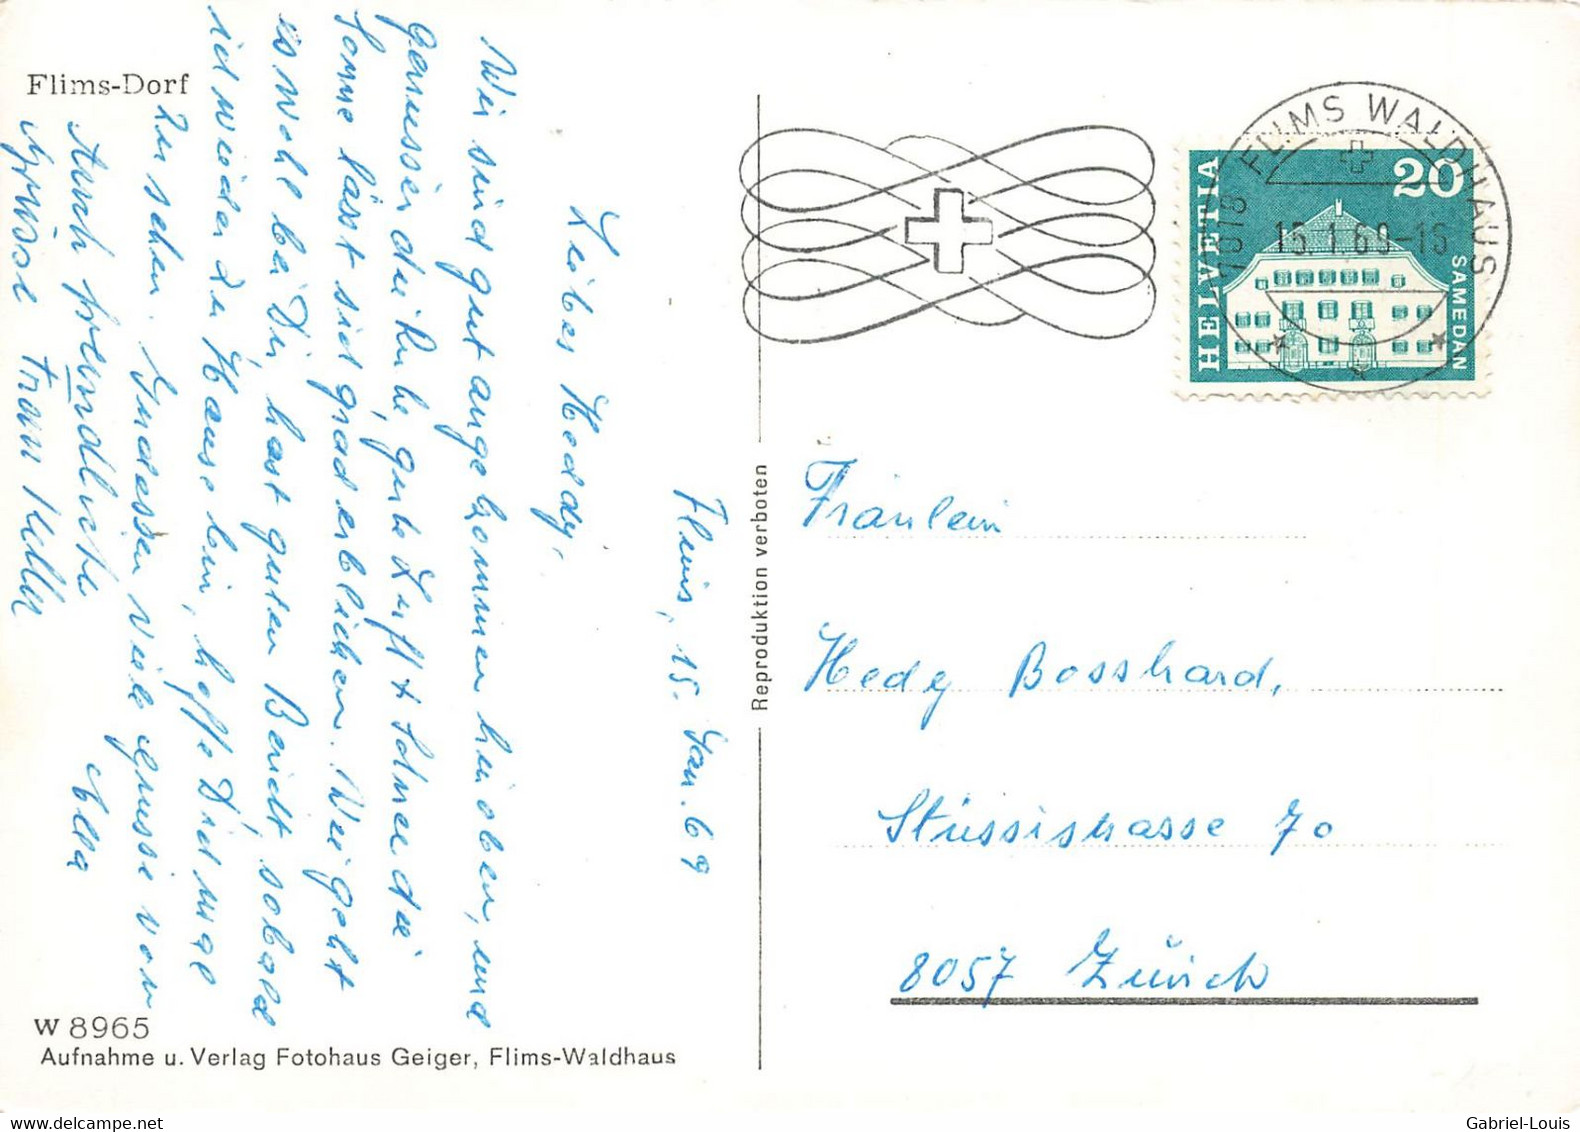 Flims-Dorf
Flims, 15. Jan. 69
Liebes Heddy,
Wir sind gut angekommen hier oben, und
geniessen die Ruhe, gute Luft & Schnee die
Sonne lässt sich grad erblicken. Wie geht
es wohl bei Dir, hast guten Bericht, sobald
ich wieder zu Hause bin, hoffe Dich mal
zu sehen. Indessen viele Grüsse von
Auch freundliche
Grüsse Frau Keller
W 8965
Aufnahme u. Verlag Fotohaus Geiger, Flims-Waldhaus
Reproduktion verboten
7018 FLIMS WALDHAUS
15.1.69-16
HELVETIA
20
SAMEDAN
Fräulein
Hedy Bosshard,
Stüssistrasse 70
8057 Zürich
Gabriel-Louis